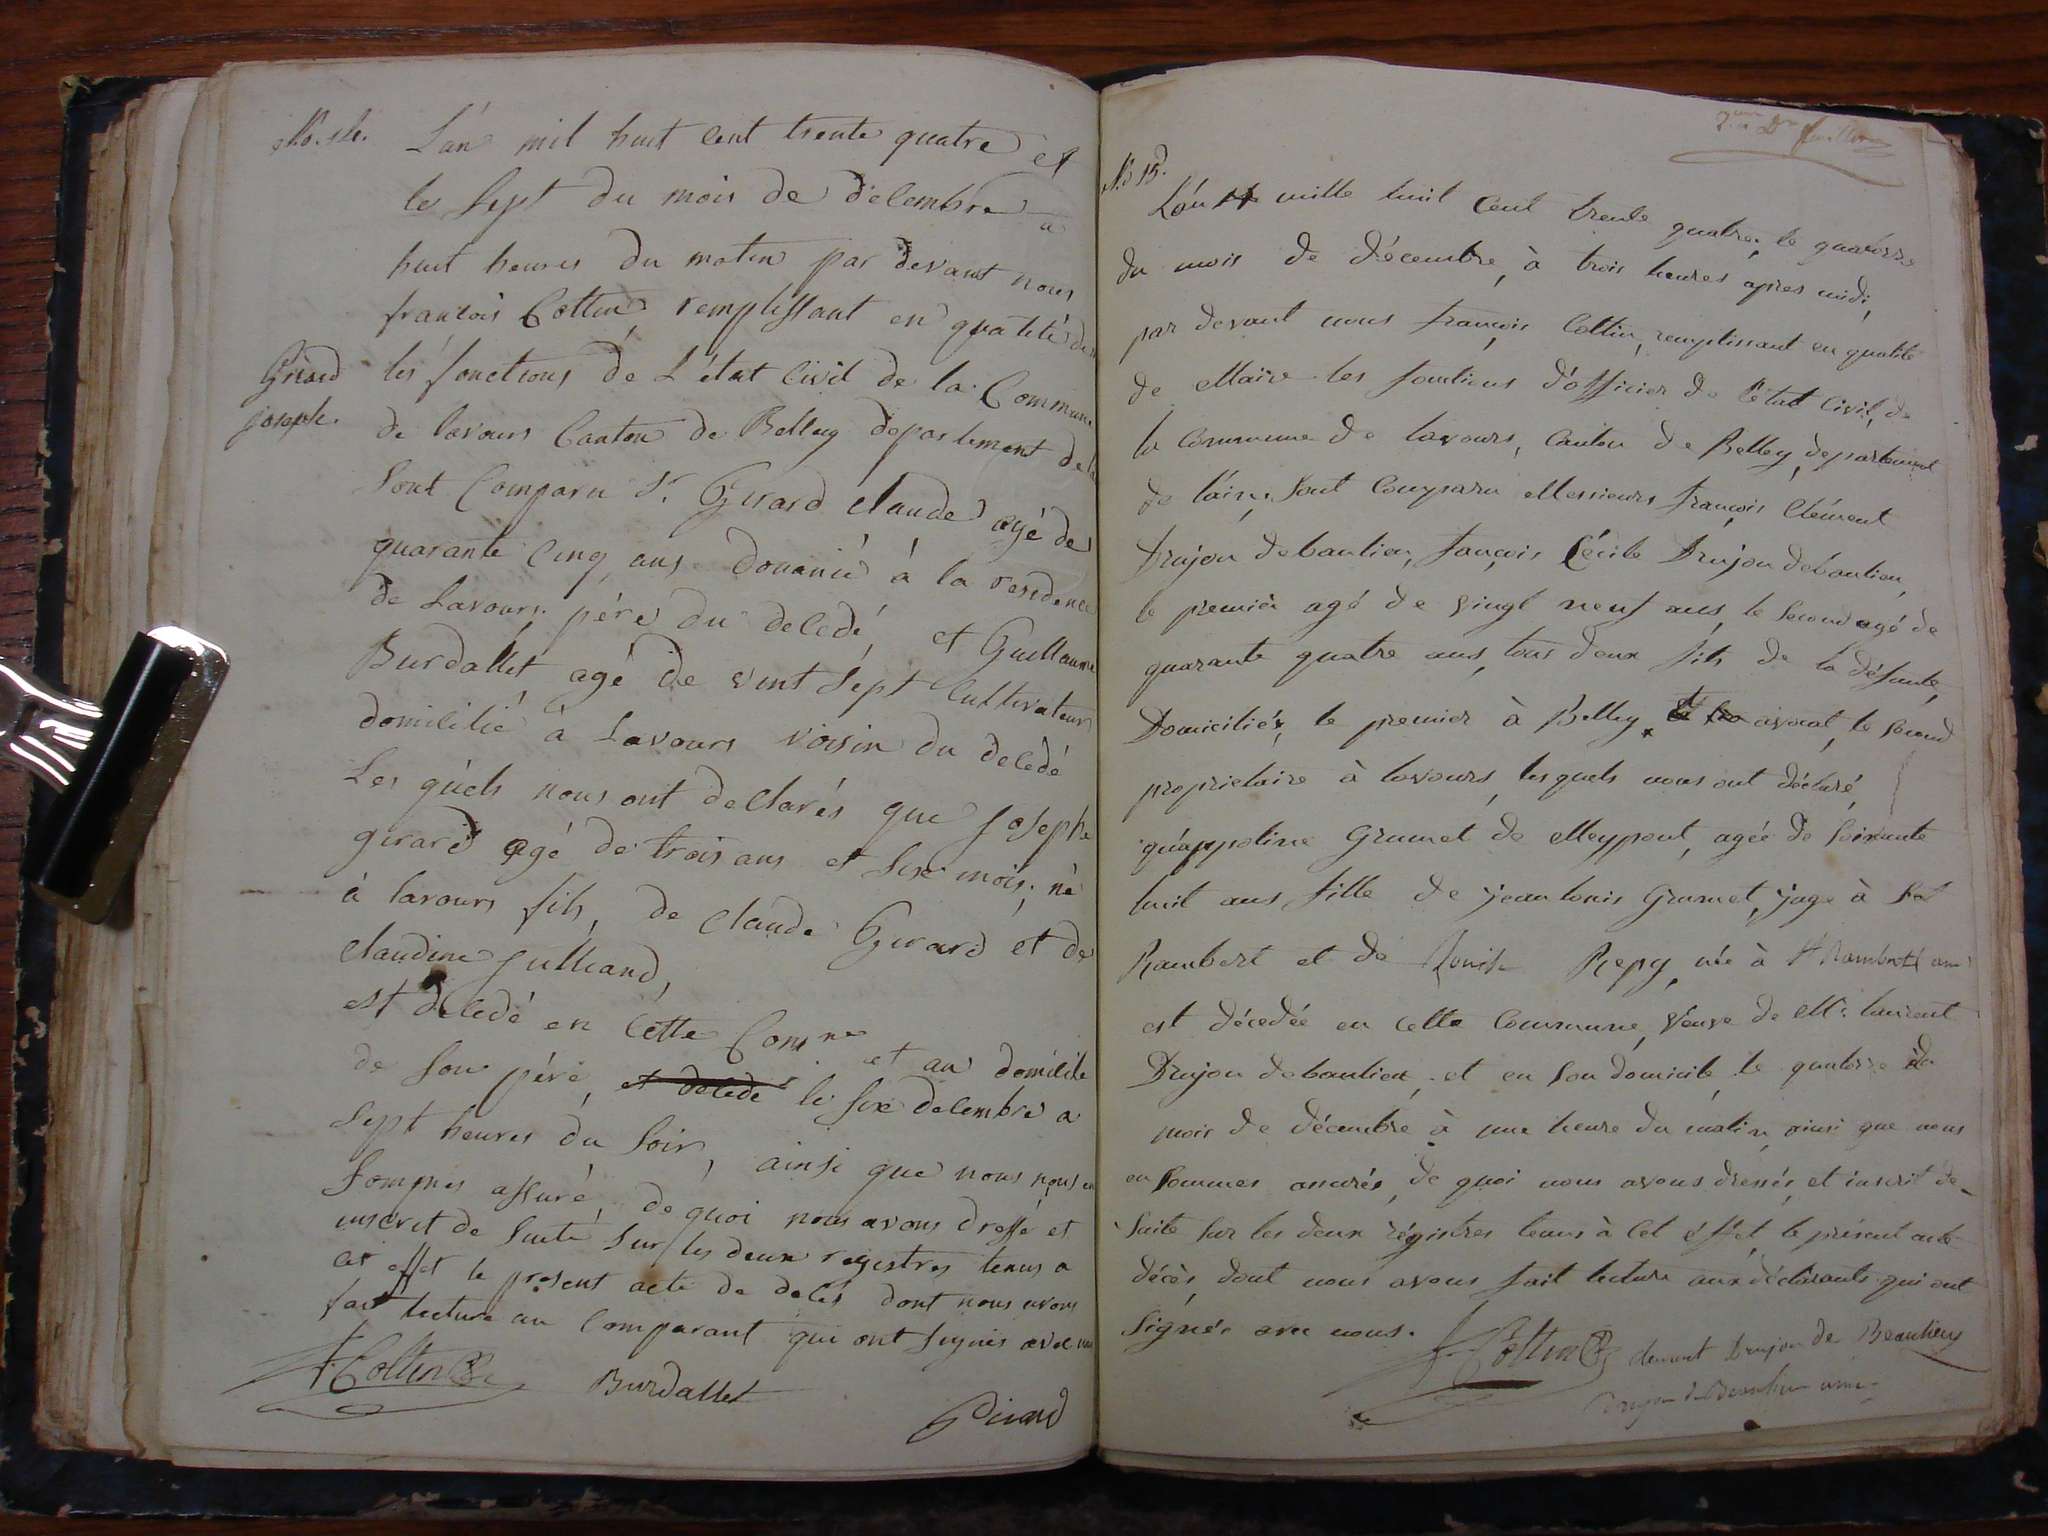 No. 14.
L'án mil huit cent trente quatre et
le sept du mois de décembre a
huit heures du matin par devant nous
françois Cottin remplissant en qualité de
Girard
joseph.
les fonctions de L'état Civil de la Commune
de lavours Canton de Belley departement de la
Sont Comparu Sr. Girard Claude agé de
quarante Cinq ans Douanié à la residence
de Lavours père du décedé, et Guillaume
Burdallet agé de vint Sept Cultivateur
domicilié à Lavours voisin du décedé
Les quéls nous ont déclarés que Joseph
girard agé de trois ans et six mois, né
à lavours fils, de Claude Girard et de
Claudine Julliand,
est décedé en cétte Comne et au domicile
de son péré, et décedé le six decembre a
Sept heures du Soir, ainsi que nous nous en
Sommes assuré, de quoi nous avons dressé et
inscrit de Suite Sur les deux registres tenus a
cet effet le present acte de decés dont nous avons
fait lecture au Comparant qui ont signés avec nous
F Cottin
Burdallet
Girard
No 15.
L'án mille huit cent trente quatre, le quatorze
du mois de décembre, à trois heures apres midi,
par devant nous françois Cottin, remplissant en qualité
de Maire les fonctions d'officier de l'état Civil, de
la Commune de lavours, Canton de Belley, departement
de l'ain, Sont Comparu Messieurs françois Clément
Drujon debaulieu, françois Cécile Drujon debaulieu,
le premier agé de vingt neuf ans, le Second agé de
quarante quatre ans, tous deux fils de la défunte,
Domiciliés, le premier à Belley, avocat, le second
proprietaire à lavours, lesquels nous ont déclaré,
qu'appoline Grumet de Meypont, agée de Soixante
huit ans fille de jean louis Grumet, juge à St
Rambert et de Louise Repy, née à St Rambert
est décedée en cette Commune, veuve de Mr. laurent
Drujon debaulieu, et en son domicile le quatorze du
mois de décembre à une heure du matin, ainsi que nous
en Sommes assurés, de quoi nous avons dressés, et inscrit de-
Suite sur les deux régistres tenus à cet éffet, le présent acte
décès, dont nous avons fait lecture aux déclarants qui ont
Signés avec nous.
F Cottin
clement Drujon de Beaulieu
Drujon de Beaulieu